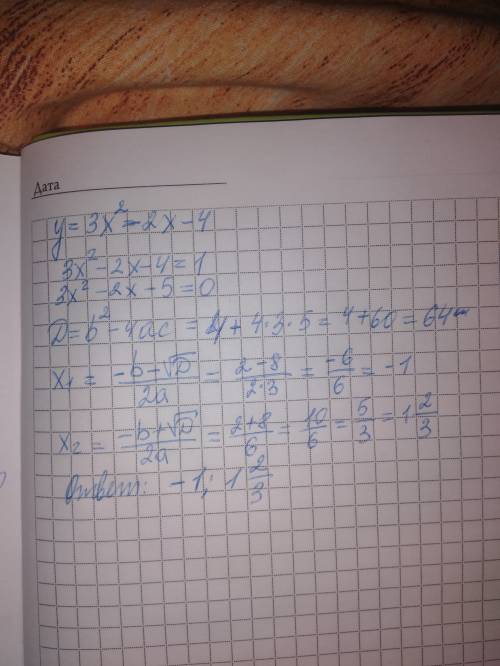 Дата
y = 3x² - 2x - 4
3x² - 2x - 4 = 1
3x² - 2x - 5 = 0
D = b² - 4ac = 4 + 4·3·5 = 4 + 60 = 64
x₁ = (-b - √D)/2a = (2 - 8)/(2·3) = -6/6 = -1
x₂ = (-b + √D)/2a = (2 + 8)/6 = 10/6 = 5/3 = 1 2/3
Ответ: -1; 1 2/3